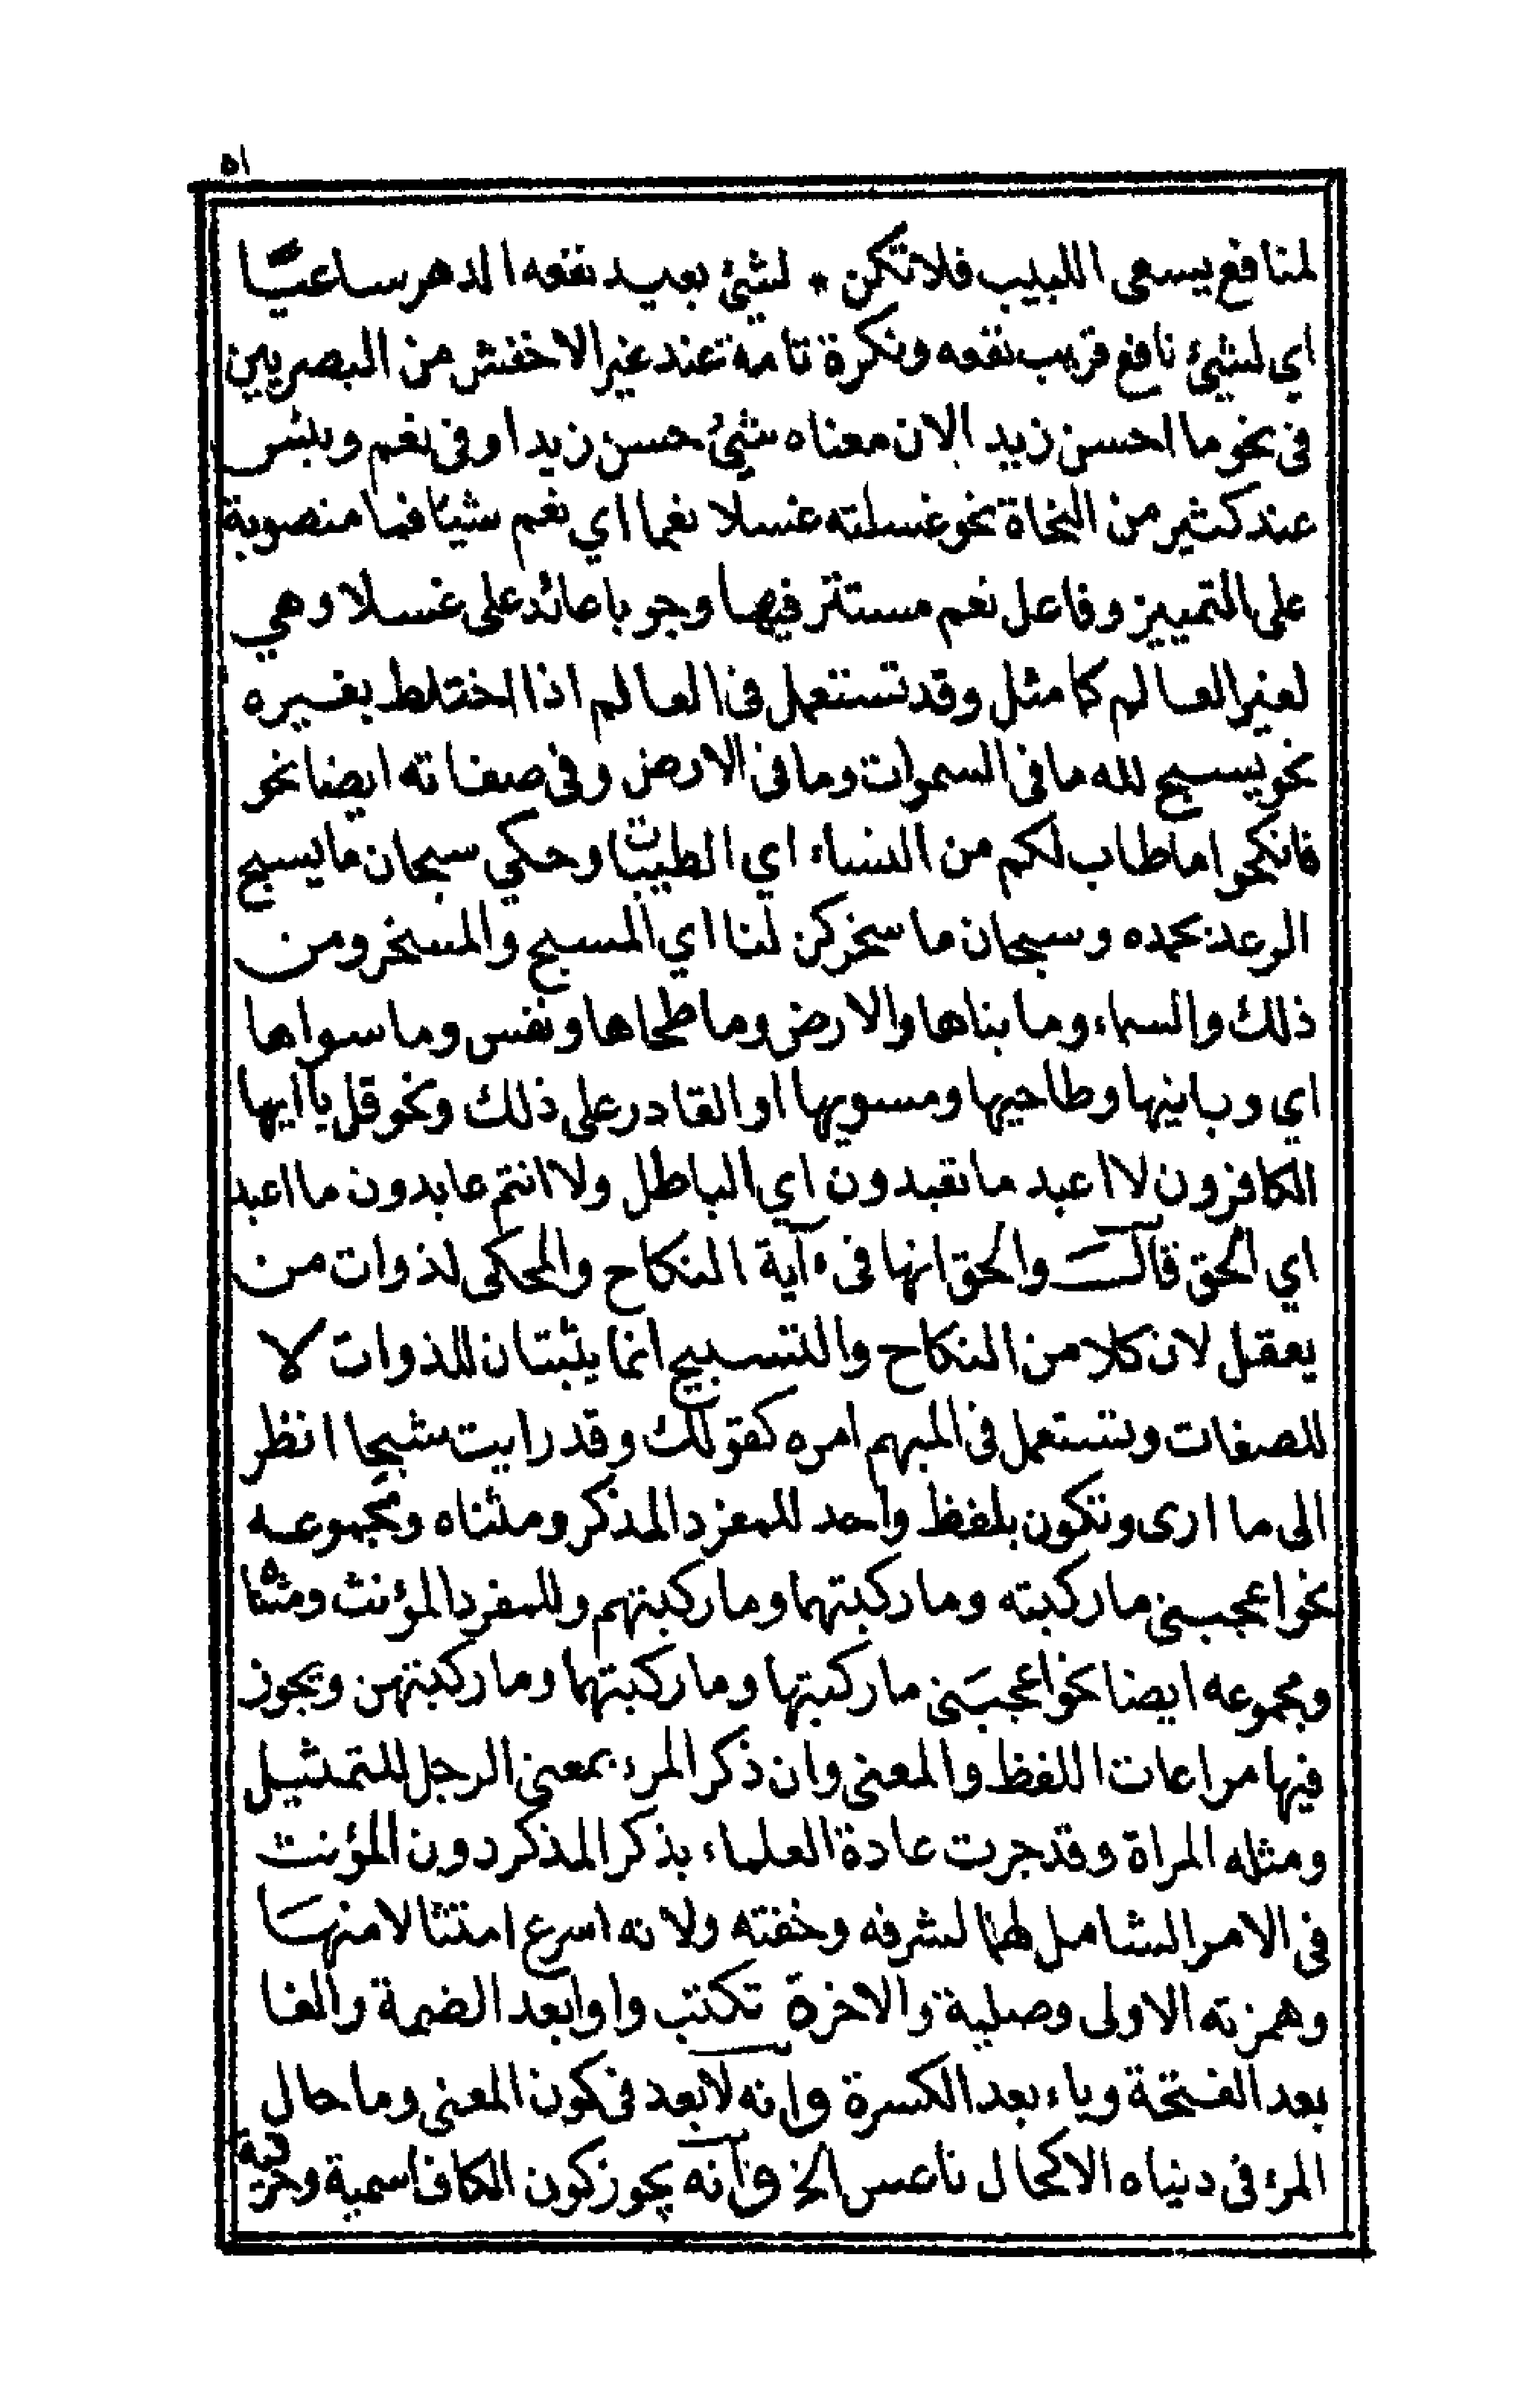 ٥١
لمنافع يسعى اللبيب فلا تكن * لشيئ بعيد نفعه الدهر ساعيا
اي لشيئ نافع قريب نفعه ونكرة تامة عند غير الاخفش من البصريين
فى نحو ما احسن زيد الان معناه شيئ حسن زيدا وفى نعم وبئس
عند كثير من النحاة نحو غسلته غسلا نعما اي نعم شيئا فما منصوبة
على التمييز وفاعل نعم مستتر فيها وجوبا عائد على غسلا وهي
لغير العالم كما مثل وقد تستعمل فى العالم اذا اختلط بغيره
نحو يسبح لله ما فى السموات وما فى الارض وفى صفاته ايضا نحو
فانكحوا ما طاب لكم من النساء اي الطيبات وحكي سبحان ما يسبح
الرعد بحمده وسبحان ما سخركن لنا اي المسبح والمسخر ومن
ذلك والسماء وما بناها والارض وما طحاها ونفس وما سواها
اي وبانيها وطاحيها ومسويها او القادر على ذلك ونحو قل يا ايها
الكافرون لا اعبد ما تعبدون اي الباطل ولا انتم عابدون ما اعبد
اي الحق قالت والحق انها فى ءاية النكاح والمحكى لذوات من
يعقل لان كلا من النكاح والتسبيح انما يثبتان للذوات لا
للصفات وتستعمل فى المبهم امره كقولك وقد رايت شبحا انظر
الى ما ارى وتكون بلفظ واحد للمفرد المذكر ومثناه ومجموعه
نحو اعجبنى ما ركبته وما ركبتهما وما ركبتهم وللمفرد المؤنث ومثناه
ومجموعه ايضا نحو اعجبنى ما ركبتها وما ركبتهما وما ركبتهن ويجوز
فيها مراعات اللفظ والمعنى وان ذكر المرء بمعنى الرجل للتمثيل
ومثله المراة وقد جرت عادة العلماء بذكر المذكر دون المؤنث
فى الامر الشامل لهما لشرفه وخفته ولانه اسرع امتثالا منها
وهمزته الاولى وصلية والاخرة تكتب واوا بعد الضمة والفا
بعد الفتحة وياء بعد الكسرة وانه لا بعد فى كون المعنى وما حال
المرء فى دنياه الا كحال ناعس الخ وانه يجوز كون الكاف اسمية وحرفية